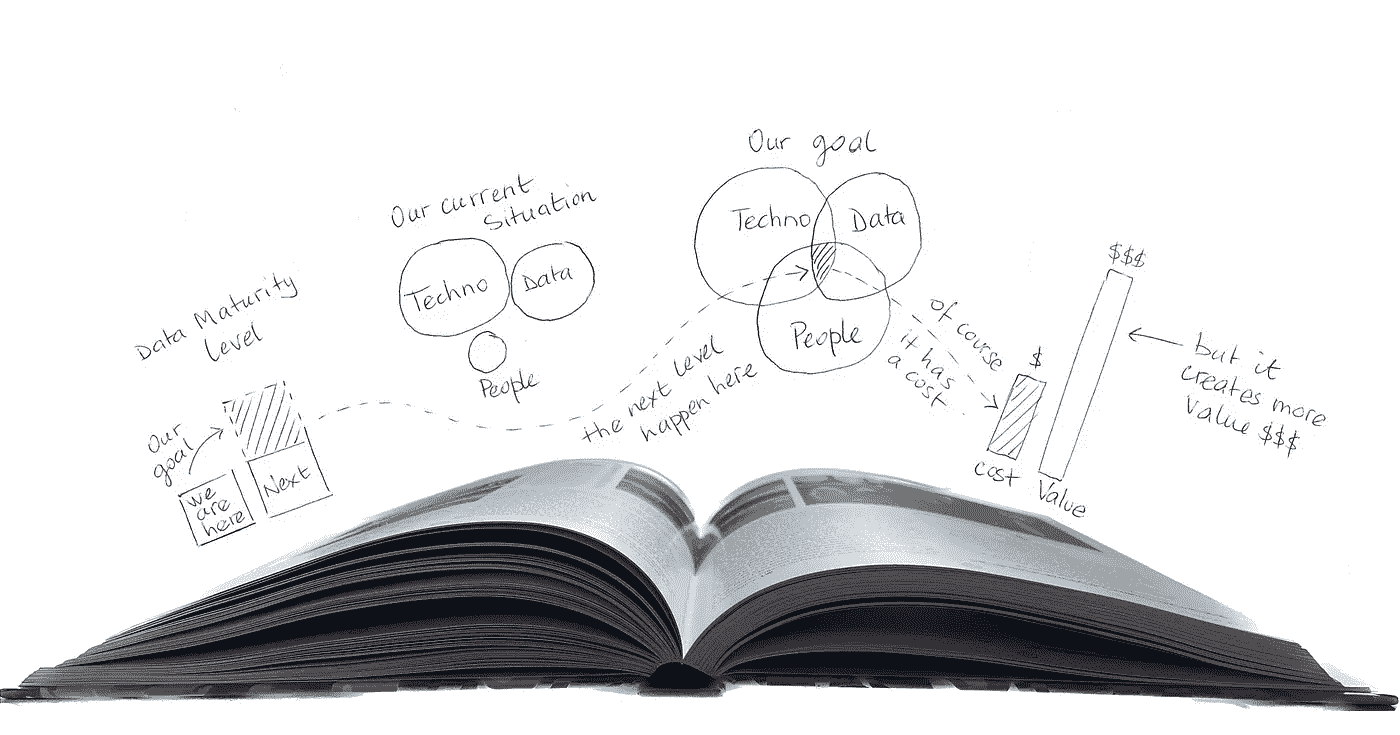 Data Maturity
level
Our
goal
we
are
here
Next
Our current
Situation
Techno
Data
People
the next level
happen here
Our goal
Techno
Data
People
of course
it has
a cost
$
cost
$$$
Value
but it
creates more
Value $$$